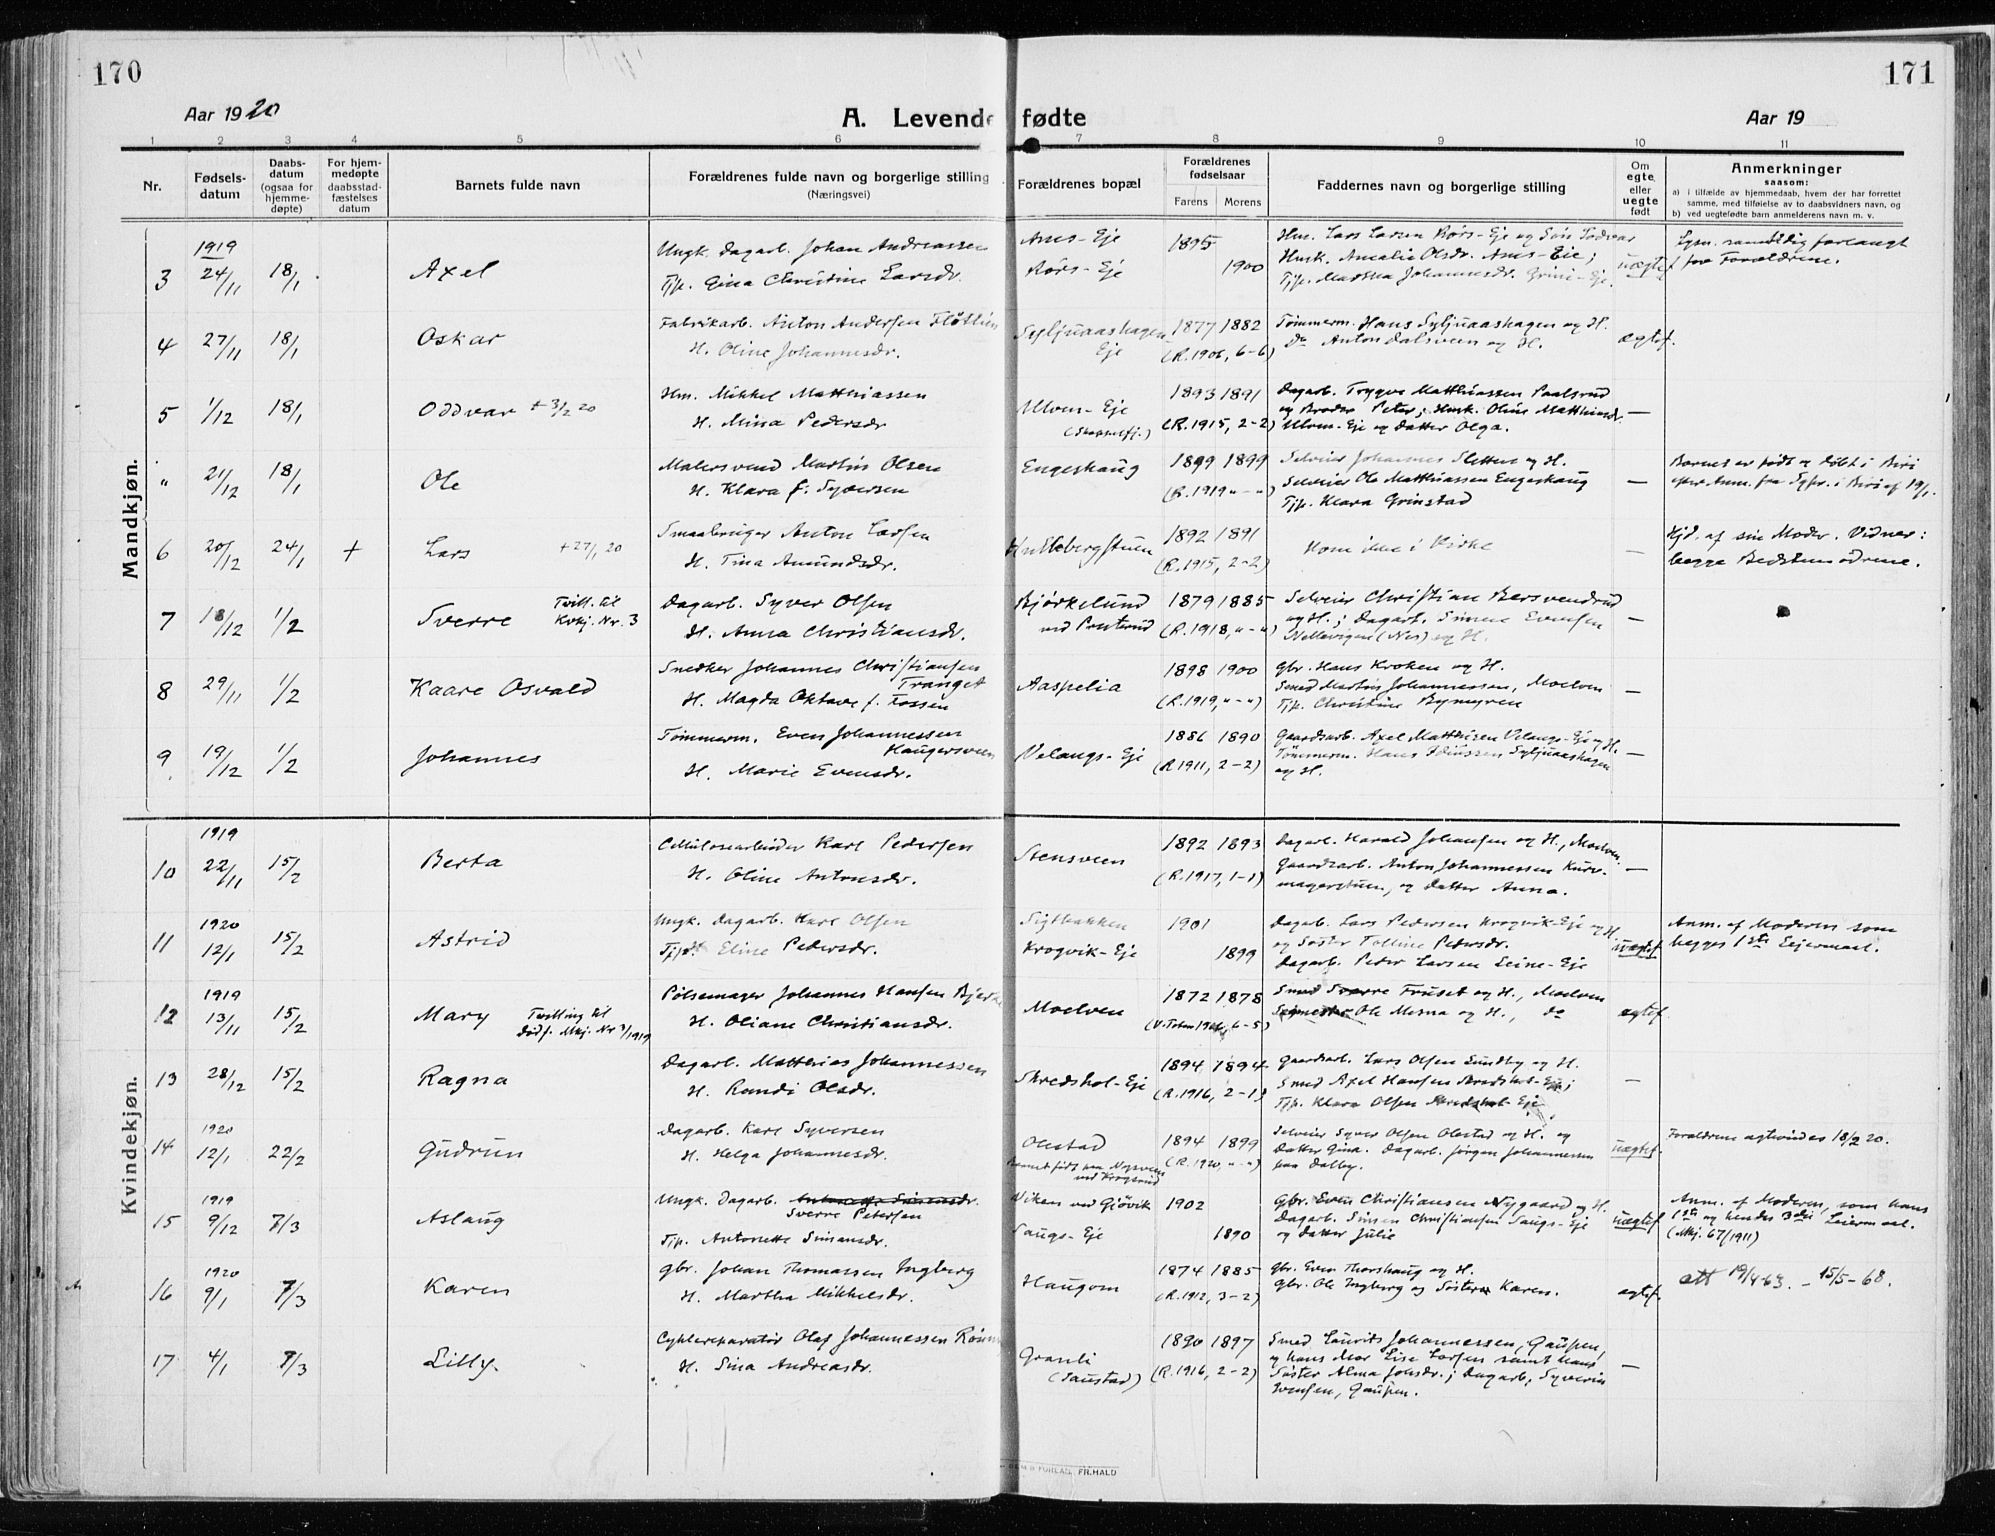 170
171
Aar 1920
A. Levende fødte
Aar 19
1 2 3 4 5 6 7 8 9 10 11
Nr.
Fødsels-
datum
Daabs-
datum
(ogsaa for
hjemme-
døpte)
For hjem-
medøpte
daabsstad-
fæstelses
datum
Barnets fulde navn
Forældrenes fulde navn og borgerlige stilling
(Næringsvei)
Forældrenes bopæl
Forældrenes
fødselsaar
Farens Morens
Faddernes navn og borgerlige stilling
Om
egte
eller
uegte
født
Anmerkninger
saasom:
a) i tilfælde av hjemmedaab, hvem der har forrettet
samme, med tilføielse av to daabsvidners navn, og
b) ved uegtefødte barn anmelderens navn m. v.
Mandkjøn.
1919
3 24/11 18/1 Axel
Ungk. Dagarb. Johan Andreassen
Tjp. Gina Christine Larsdr.
Aas-Eje
Rørs-Eje
1895
1900
Hm. Lars Larsen Rørs-Eje og Søn
Husk. Amalie Olsdr.
Tjp. Martha Johannesdr. Grini-Eje.
uægtef
forlangt
fra Forældrene.
4 27/11 18/1 Oskar
Fabrikarb. Anton Andersen
H. Oline Johannesdr.
Syljuaashagen
Eje
1877 1882
(R. 1906, 6-6)
Tømmerm. Hans Syljuaashagen og H.
Do Anton Dalsveen og H.
ægtef.
5 1/12 18/1 Oddvar + 3/2 20
Hm. Mikkel Matthiassen
H. Mina Pedersdr
Ulven-Eje
1893 1891
(R. 1915, 2-2)
Dagarb. Trygve Matthiassen Paalsrud
og Broder Peter; Husk. Oline Matthiasdr.
Ulven-Eje og Datter Olga.
—
" 21/12 18/1 Ole
Malersvend Martin Olsen
H. Klara f. Syversen
Engeshaug
1899 1899
(R. 1919 "-")
Selveier Johannes Sletten og H.
Selveier Ole Matthiassen Engeshaug
Tjp. Klara Grinstad
—
Barnet er født og døbt i Biri
efter Anm. fra Sgpr. i Biri af 19/1.
6 20/12 24/1 + Lars + 27/1 20
Smaabruger Anton Larsen
H. Tina Amundsdr.
Hulebergstuen
1892 1891
(R. 1915, 2-2)
Kom ikke i Kirke
—
Hjd. af sin Moder. Vidner:
begge Bedstemødrene.
7 18/12 1/2 Sverre
Tvill. til
Kvkj. Nr. 3
Dagarb. Syver Olsen
H. Anna Christiansdr.
Bjørkelund
ved Prsterud
1879 1885
(R. 1918, "-")
Selveier Christian Bersvendrud
og H.; Dagarb. Simen Evensen
(Nes) og H.
—
8 29/11 1/2 Kaare Osvald
Snedker Johannes Christiansen
Tranget
H. Magda Oktave f. Fossen
Aaspelia
1898 1900
(R. 1919, "-")
Gbr. Hans Kroken og H.
Smed Martin Johannessen, Moelven
Tjp. Christine Bymyren
—
9 19/12 1/2 Johannes
Tømmerm. Even Johannessen
Haugersveen
H. Marie Evensdr.
Velangs-Eje
1886 1890
(R. 1911, 2-2)
Gaardsarb. Axel Mathisen Velangs-Eje og H.
Tømmerm. Hans Syljuaashagen
og H.
—
Kvindekjøn.
1919
10 22/11 15/2 Berta
Cellulosearbeider Karl Pedersen
H. Oline Antonsdr.
Stensveen
1892 1893
(R. 1917, 1-1)
Dagarb. Harald Johansen og H., Moelven
Gaardsarb. Anton Johannessen Kurv-
magerstuen, og Datter Anna.
—
1920
11 12/1 15/2 Astrid
Ungk. Dagarb. Karl Olsen
Tjp. Eline Pedersdr.
Sigtbakken
Krogvik-Eje
1901
1899
Dagarb. Lars Pedersen Krogvik-Eje og H.
og Søster Tolline Pedersdr.
Dagarb. Peder Larsen Leine-Eje
uægtef.
Anm. af Moderen som
begges 1ste Lejermaal.
1919
12 13/11 15/2 Mary
Tvilling til
dødf. Mkj. Nr 3/1919
Pølsemager Johannes Hansen
H. Oliane Christiansdr.
Moelven
1872 1878
Smed Sverre Fruset og H., Moelven
Ole Mesna og H., do
ægtef.
13 28/12 15/2 Ragna
Dagarb. Matthias Johannessen
H. Randi Olsdr.
Skredshol-Eje
1894 1894
(R. 1916, 2-1)
Gaardsarb. Lars Olsen Sundby og H.
Smed Axel Hansen Skredshol-Eje;
Tjp. Klara Olsen Skredshol-Eje
—
1920
14 12/1 22/2 Gudrun
Dagarb. Karl Syversen
H. Helga Johannesdr.
Olestad
1894 1899
(R. 1920, "-")
Selveier Syver Olsen Olestad og H. og
Datter Gina. Dagarb. Jørgen Johannessen
paa Dalby.
uægtef.
Forældrene ægteviedes 18/2 20.
1919
15 9/12 7/3 Aslaug
Ungk. Dagarb.
Sverre Petersen
Tjp. Antonette Simensdr.
Viken ved Gjøvik
Saugs-Eje
1902
1890
Gbr. Even Christiansen Nygaard og H.
Dagarb. Simen Christiansen Saugs-Eje
og Datter Julie
uægtef.
Anm. af Moderen, som hans
1ste og hendes 3die Leierm aal.
(Mkj. 67/1911)
1920
16 9/1 7/3 Karen
Gbr. Johan Thomassen Ingberg
H. Martha Mikkelsdr.
Haugom
1874 1885
(R. 1912, 3-2)
Gbr. Even Thorshaug og H.
Gbr. Ole Ingberg og Søster Karen.
ægtef.
att 19/4-63. - 15/5-68.
17 4/1 7/3 Lilly
Cyklereparatør Olaf Johannessen
H. Sina Andreasdr.
Granli
(Saustad)
1890 1897
(R. 1916, 2-2)
Smed Laurits Johannessen, Gaupen,
og hans Mor Lise Larsen samt hans
Søster Alma Johsdr.; Dagarb. Syverin
Svensen, Gaupen.
—
FORLAG, FR.HALD